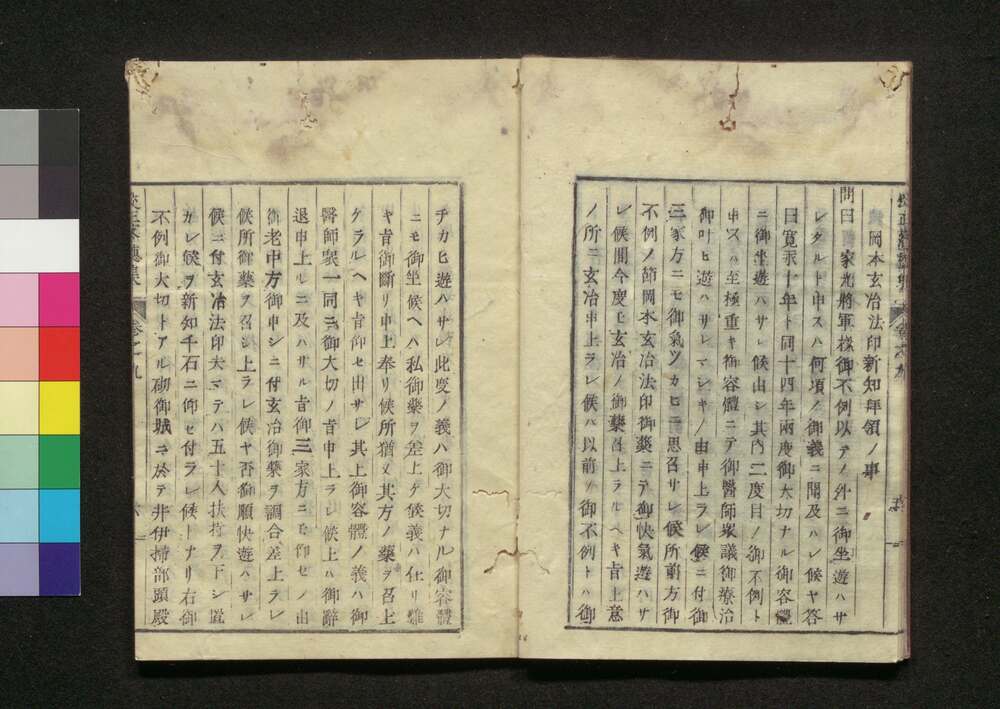 岡本玄冶法印新知拜領ノ事
問曰 家光將軍樣御不例以テノ外ニ御坐遊ハサ
レタルト申スハ何頃ノ御義ニ聞及ハレ候ヤ答
曰寛永十年ト同十四年兩度御大切ナル御容體
ニ御坐遊ハサレ候由シ其內二度目ノ御不例ト
申スハ至極重キ御容體ニテ御醫師衆議御療治
御叶ヒ遊ハサレマシキノ由申上ラレ候ニ付御
三家方ニモ御氣ツカヒニ思召サレ候所前方御
不例ノ節岡本玄冶法印御藥ニテ御快氣遊ハサ
レ候間今度モ玄冶ノ御藥召上ラルヘキ旨上意
ノ所ニ玄冶申上ラレ候ハ以前ノ御不例トハ御
チカヒ遊ハサレ此度ノ義ハ御大切ナル御容體
ニモ御坐候ヘハ私御藥ヲ差上ケ候義ハ仕リ難
キ旨御斷リ申上奉リ候所猶又其方ノ藥ヲ召上
クラルヘキ旨仰セ出サレ其上御容體ノ義ハ御
醫師衆一同ニ御大切ノ旨申上ラレ候上ハ御辭
退申上ルニ及ハサル旨御三家方ニモ仰セノ由
御老中方御申シニ付玄冶御藥ヲ調合差上ラレ
候所御藥ヲ召シ上ラレ候ヤ否御順快遊ハサレ
候ニ付玄冶法印夫マテハ五十人扶持ヲ下シ置
カレ候ヲ新知千石ニ仰セ付ラレ候トナリ右御
不例御大切トアル砌御城ニ於テ井伊掃部頭殿